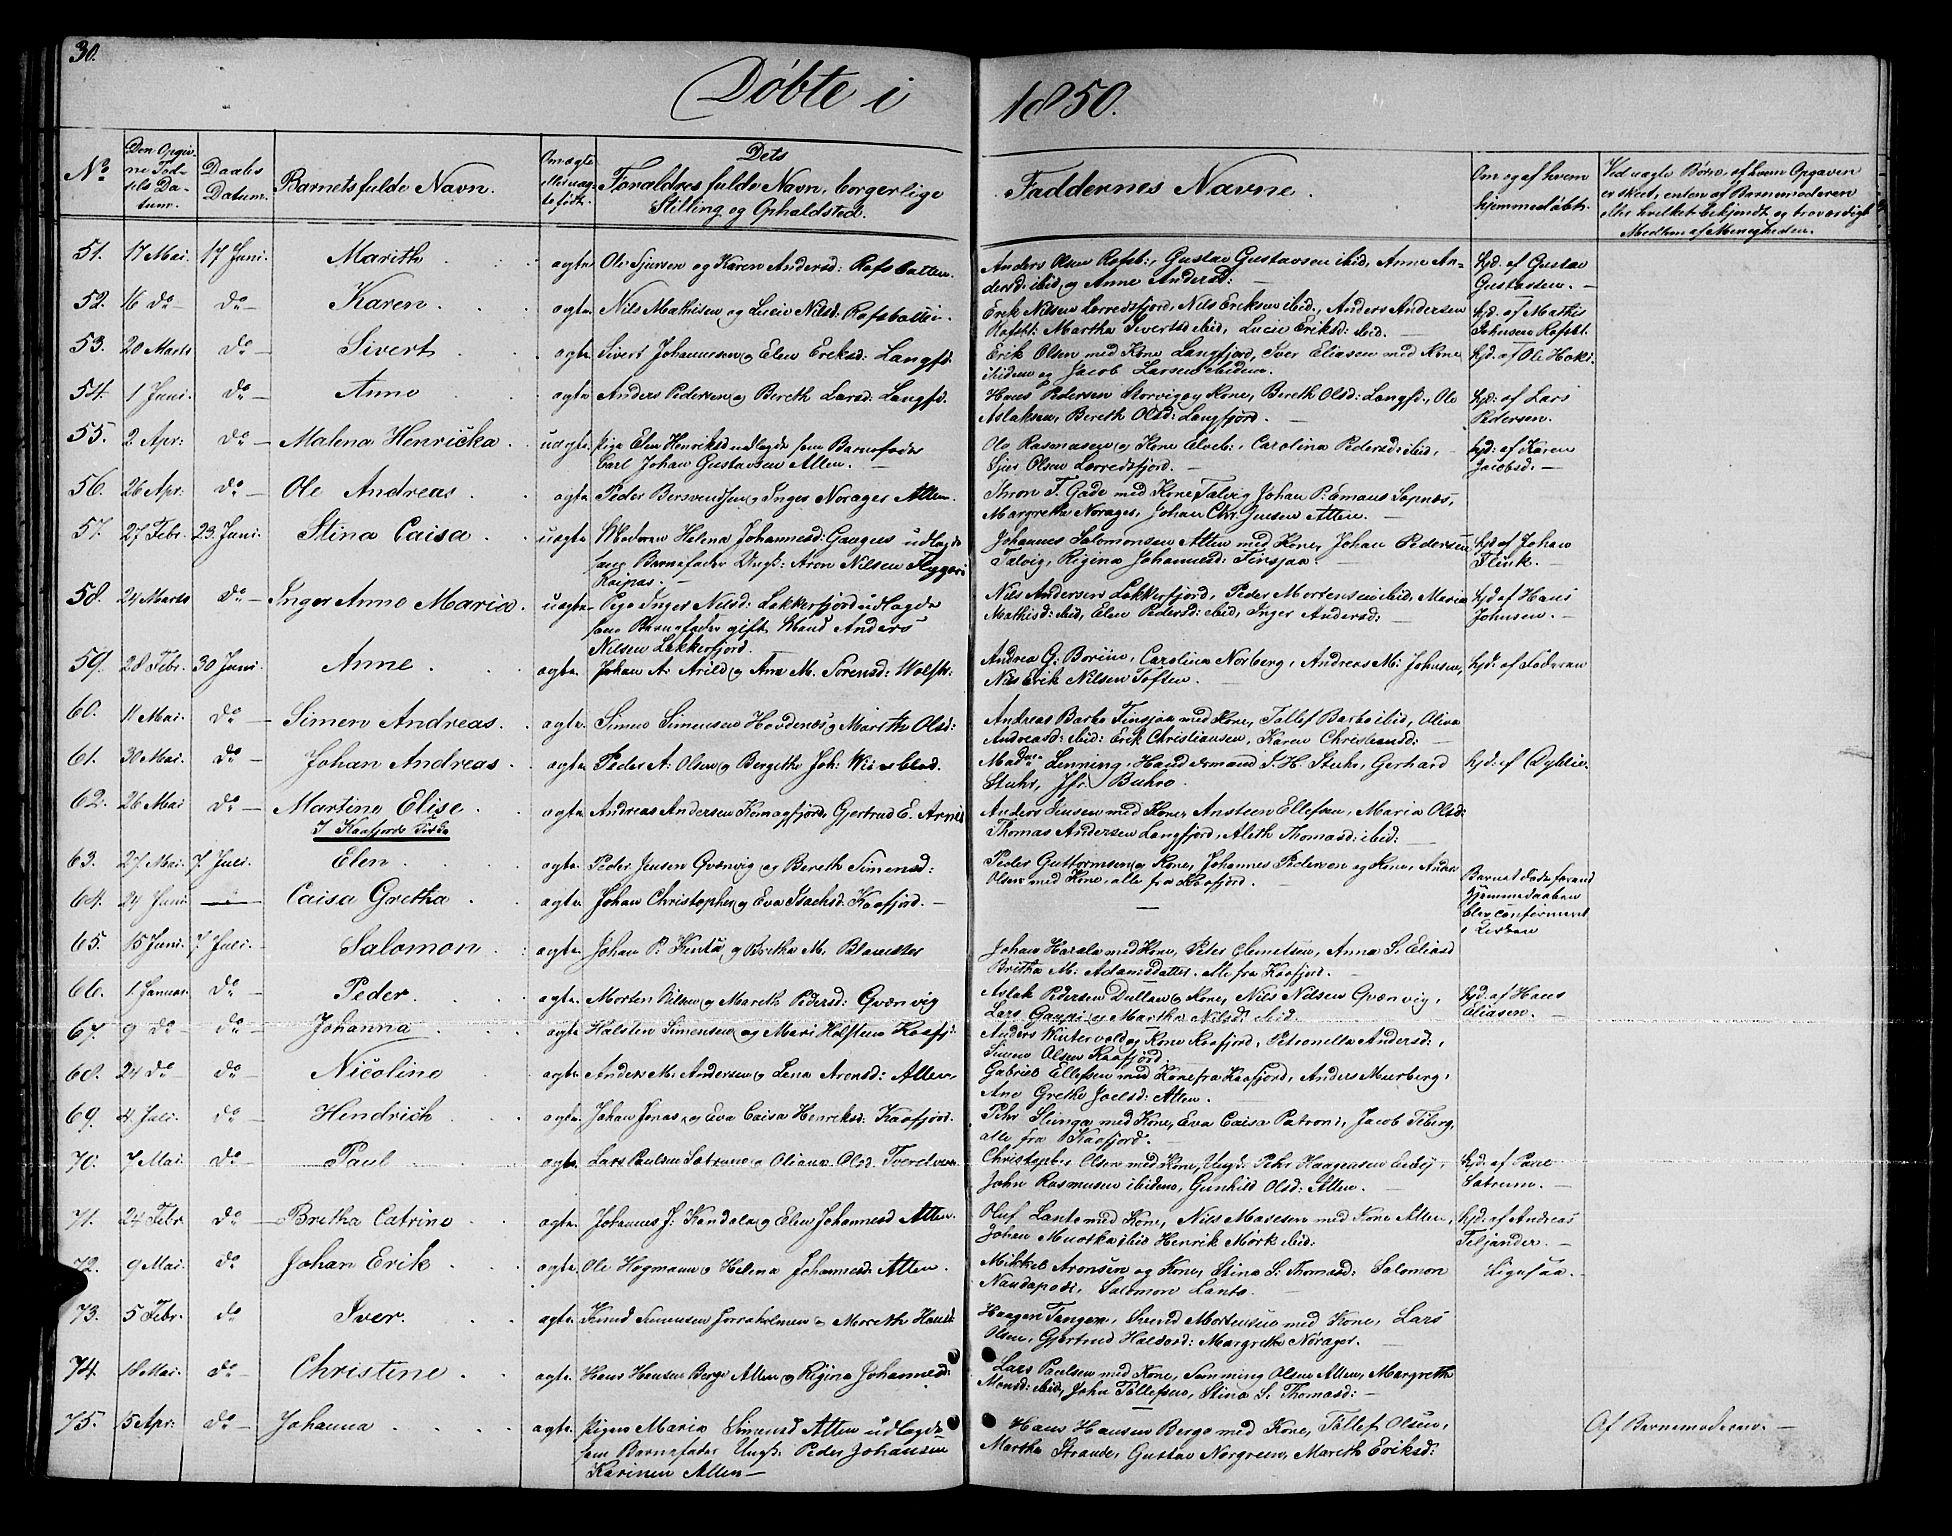 30.
Døbte i 1850.
No.
Den Opgivne Fødsels Datum.
Daabs Datum.
Barnets fulde Navn.
Om ægte eller uægte født.
Dets Forældres fulde Navn, borgerlige Stilling og Opholdsted.
Faddernes Navne.
Om og af hvem hjemmedøbt.
Ved uægte Børn, af hvem Opgaven er skeet, enten af Barnemoderen eller hvilket bekjendt og troværdigt Medlem af Menigheden.
51. 17 Mai. 17 Juni. Marith. ægte Ole Sjursen og Karen Andersd: Rafsbotten. Anders Olsen Rafsb:, Gustav Gustavsen ibid, Anne An- hjd. af Gustav
dersd: ibid og Anne Andersd: Gustavsen.
52. 16 do do Karen. ægte Nils Mathisen og Lucie Nilsd: Rafsbotten. Erik Nilsen Lerredsfjord, Nils Eriksen ibid, Anders Andersen hjd. af Mathis
Rafsb: Martha Sivertsd ibid, Lucie Eriksd: ibid. Johnsen Rafsbt.
53. 20 Marts do Sivert ægte Sivert Johannesen og Elen Eriksd: Langfd. Erik Olsen med Kone Langfjord, Iver Eliasen med Kone hjd. af Ole
ibidem og Jacob Larsen ibidem.
54. 1 Juni. do Anne ægte Anders Pedersen og Bereth Larsd: Langfd. Hans Pedersen Storvig og Kone, Bereth Olsd: Langfd:, Ole hjd: af Lars
Aslaksen, Bereth Olsd: Langfjord. Pedersen.
55. 2 Apr: do Malena Henricka uægte pige Elen Henriksd udlagde som Barnefader Ole Rasmusen og Kone Elveb:, Carolina Pedersd: ibid, hjd: af Karen
Carl Johan Gustavsen Alten. Sjur Olsen Lerredsfjord. Jacobsd:
56. 26 Apr: do Ole Andreas ægte Peder Bersvendsen og Inger Norager Alten. Thron F. Gade med Kone Talvig Johan P: Emaus Sopnæs,
Margretha Norager, Johan Chr. Jensen Alten.
57. 27 Febr. 23. Juni. Stina Caisa uægte Moderen Helena Johannesd: udlagde Johannes Salomonsen Alten med Kone, Johan Pedersen hjd. af Johan
som Barnefader Ungk: Aron Nilsen Flygari Talvig, Regina Johannesd: Finsjaa. Flink.
Raipas.
58. 24 Marts do Inger Anne Maria. uægte Pige Inger Nilsd: Lekkerfjord udlagde Nils Andersen Lekkerfjord, Peder Mortensen ibid, Maria hjd. af Hans
som Barnefader gift Mand Anders Mathisd: ibid, Elen Pedersd: ibid, Inger Andersd: Johnsen.
Nilsen Lekkerfjord.
59. 28 Febr. 30 Juni. Anne ægte. Johan A: Arild og Ane M. Sørensd: Andrea G: Carolina Norberg, Andreas M: Johnsen, hjd: af Faderen
Nils Erik Nilsen Toften.
60. 11 Mai. do Simen Andreas. ægte. Simen Simensen Hovdenes og Marith Olsd: Andreas Barbo Finsjaa med Kone, Tollef Barbo ibid, Oliva
Andreasd: ibid: Erik Christiansen, Karen Christiansd:
61. 30 Mai. do Johan Andreas ægte. Peder A: Olsen og Bergithe Joh: Madme Lenning, Handelsmand J. H. Stuhr, Gerhard hjd: af
Stuhr, Jfr: Buhre.
62. 26 Mai do Martine Elise ægte Andreas Andersen Komagfjord, Gjertrud E. Anders Jensen med Kone, Ansteen Ellefsen, Maria Olsd:
I Kaafjords Kirke Thomas Andersen Langfjord, Aleth Thomasd: ibid:
63. 27 Mai. 7 Juli. Elen. ægte. Peder Jensen Qvænvig og Bereth Simensd: Peder Guttormsen og Kone, Johannes Pedersen og Kone, Anders
Olsen med Kone, alle fra Kaafjord.
64. 24 Juni Caisa Gretha ægte Johan Christopher og Eva Isachsd: Kaafjord. Barnet døde førend Hjemmedaaben blev confirmeret i Kirken
65. 15 Juni. 7 Juli. Salomon ægte Johan P. og Bretha M. Johan med Kone, Peter Clemetsen, Anna S. Eliasd
Britha M: Adamsdatter. alle fra Kaafjord.
66. 1 Januar. do Peder. ægte Morten Nilsen og Mareth Pedersd: Qvænvig Aslak Pedersen og Kone, Nils Nilsen Qvænvig, hjd: af Hans
Lars Gaupi og Martha Nilsd: ibid. Eliasen.
67. 9 do do Johanna ægte Halsten Simensen og Mari Kaafj: Anders Wintervold og Kone Kaafjord, Petronella Andersd:,
Simen Olsen Kaafjord.
68. 24 do do Nicoline ægte. Anders M. Andersen og Lena Aronsd: Alten Gabriel Ellefsen med Kone fra Kaafjord, Anders Murberg,
Ane Grethe Joelsd: Alten.
69. 4 Juli. do Hendrich ægte. Johan Jonas, og Eva Caisa Henriksd: Kaafjord. Pehr Slunga med Kone, Eva Caisa Patroni, Jacob Fiberg,
alle fra Kaafjord.
70. 7 Mai do Paul ægte Lars Paulsen Sætrum og Oliana Olsd: Tverelven Christopher Olsen med Kone, Ungk: Pehr Haagensen hjd: af Paul
John Rasmusen ibidem, Gunhild Olsd: Alten. Sætrum.
71. 24 Febr do Bretha Catrine ægte Johannes J: Kandala og Elen Johannesd Alten. Oluf Lanto med Kone, Nils Maresen med Kone Alten, hjd. af Andreas
Johan Muotka ibid Henrik Mørk ibid: Feljander.
72. 9 Mai. do Johan Erik ægte. Ole Hogmann og Helena Johannesd: Alten. Mikkel Aronsen og Kone, Stina S. Thomasd: Salomon Ligesaa.
Salomon Lanto.
73. 5 Febr. do Iver ægte. Knud Simensen og Mareth Haagen Tangen, Svend Mortensen med Kone, Lars
Olsen, Gjertrud Haldord: Margrethe Norager.
74. 18 Mai. do Christine ægte. Hans Hansen Berge Alten og Regina Johannesd: Lars Paulsen med Kone, Semming Olsen Alten, Margreth
Monsd: ibid, John Tollefsen, Stina S. Thomasd:
75. 5 Apr: do Johanna ægte. Pigen Maria Simensd Alten udlagde Hans Hansen Berge med Kone, Tollef Olsen, Af Barnemoderen.
som Barnefader Ungk: Peder Johansen Martha Strande, Gustav Norgreen, Mareth Eriksd:
Karinen Alten